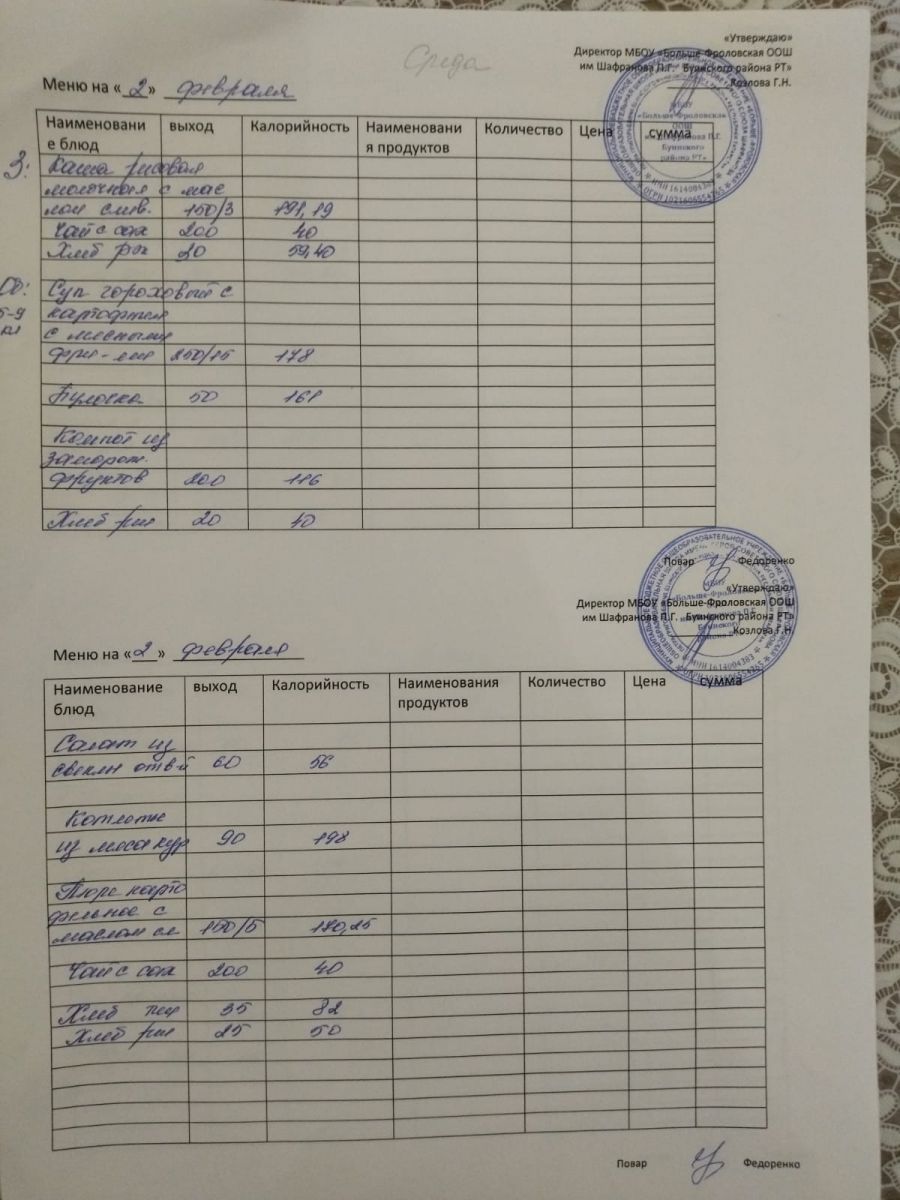 Среда
«Утверждаю»
Директор МБОУ «Больше-Фроловская ООШ
им Шафранова П.Г. Буинского района РТ»
Козлова Г.Н.
Меню на «2» февраля
Наименовани
е блюд
выход
Калорийность
Наименовани
я продуктов
Количество
Цена
сумма
З:
Каша рисовая
молочная с мас
лом слив. 150/3 191,19
Чай с сах 200 40
Хлеб рж 20 59,40
Об:
5-9
кл
Суп гороховый с
картофелем
с мясными
фри-ми 250/15 178
Булочка 50 161
Компот из
заморож.
фруктов 200 116
Хлеб рж 20 40
Повар Федоренко
«Утверждаю»
Директор МБОУ «Больше-Фроловская ООШ
им Шафранова П.Г. Буинского района РТ»
Козлова Г.Н.
Меню на «2» февраля
Наименование
блюд
выход
Калорийность
Наименования
продуктов
Количество
Цена
сумма
Салат из
свеклы отв-й 60 56
Котлеты
из мяса кур 90 198
Пюре карто
фельное с
маслом сл 150/5 180,25
Чай с сах 200 40
Хлеб пш 35 82
Хлеб рж 25 50
Повар Федоренко
МБОУ
«Больше-Фроловская
ООШ
им Шафранова П.Г.
Буинского
района РТ»
ИНН 1614004383
ОГРН 1021606554265